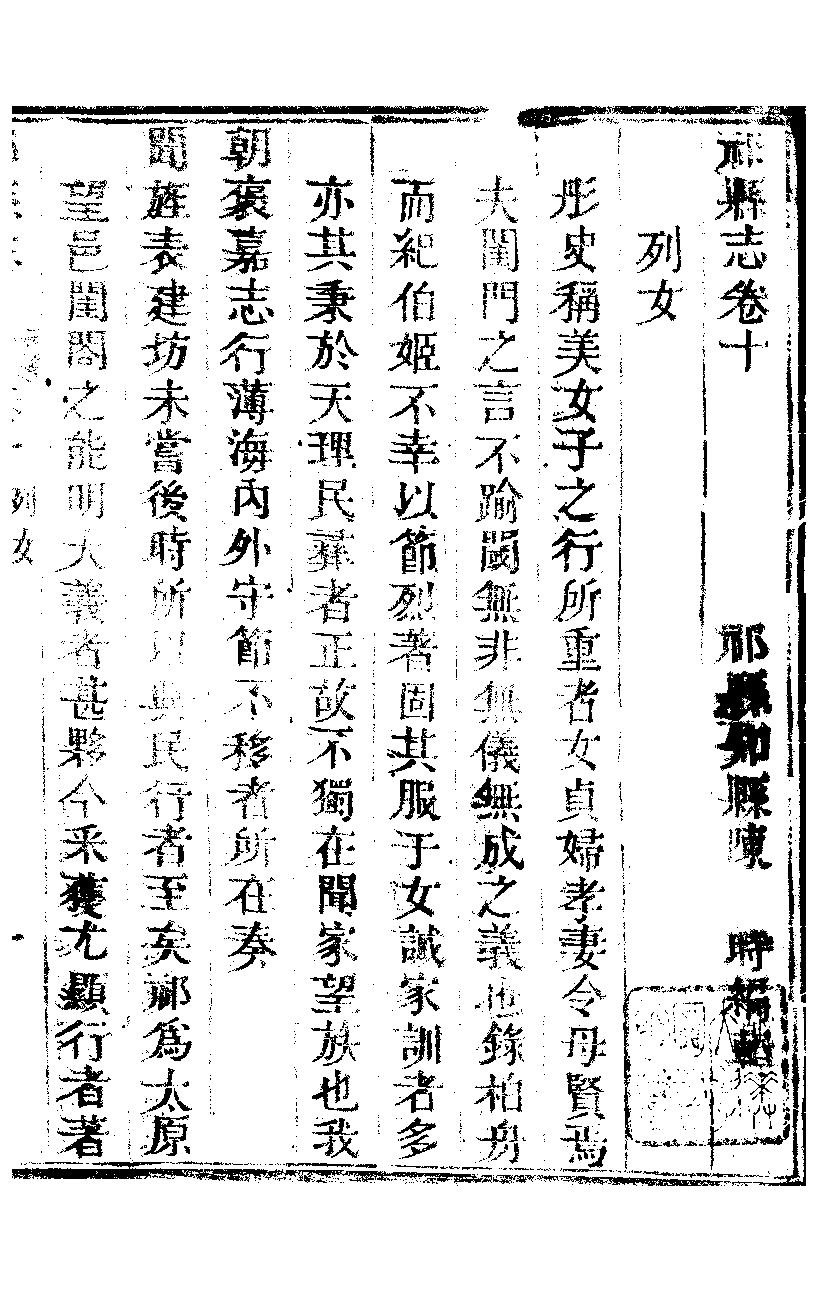 祁縣志卷十　祁縣知縣陳　時編輯
列女
彤史稱美女子之行所重者女貞婦孝妻令母賢焉
夫閨門之言不踰閾無非無儀無成之義也錄柏舟
而紀伯姬不幸以節烈著固其服于女誡家訓者多
亦其秉於天理民彝者正故不獨在聞家望族也我
朝褒嘉志行薄海內外守節不移者所在奏
聞旌表建坊未嘗後時所以興民行者至矣祁為太原
望邑閨閤之能明大義者甚夥今采獲尤顯行者著
列女